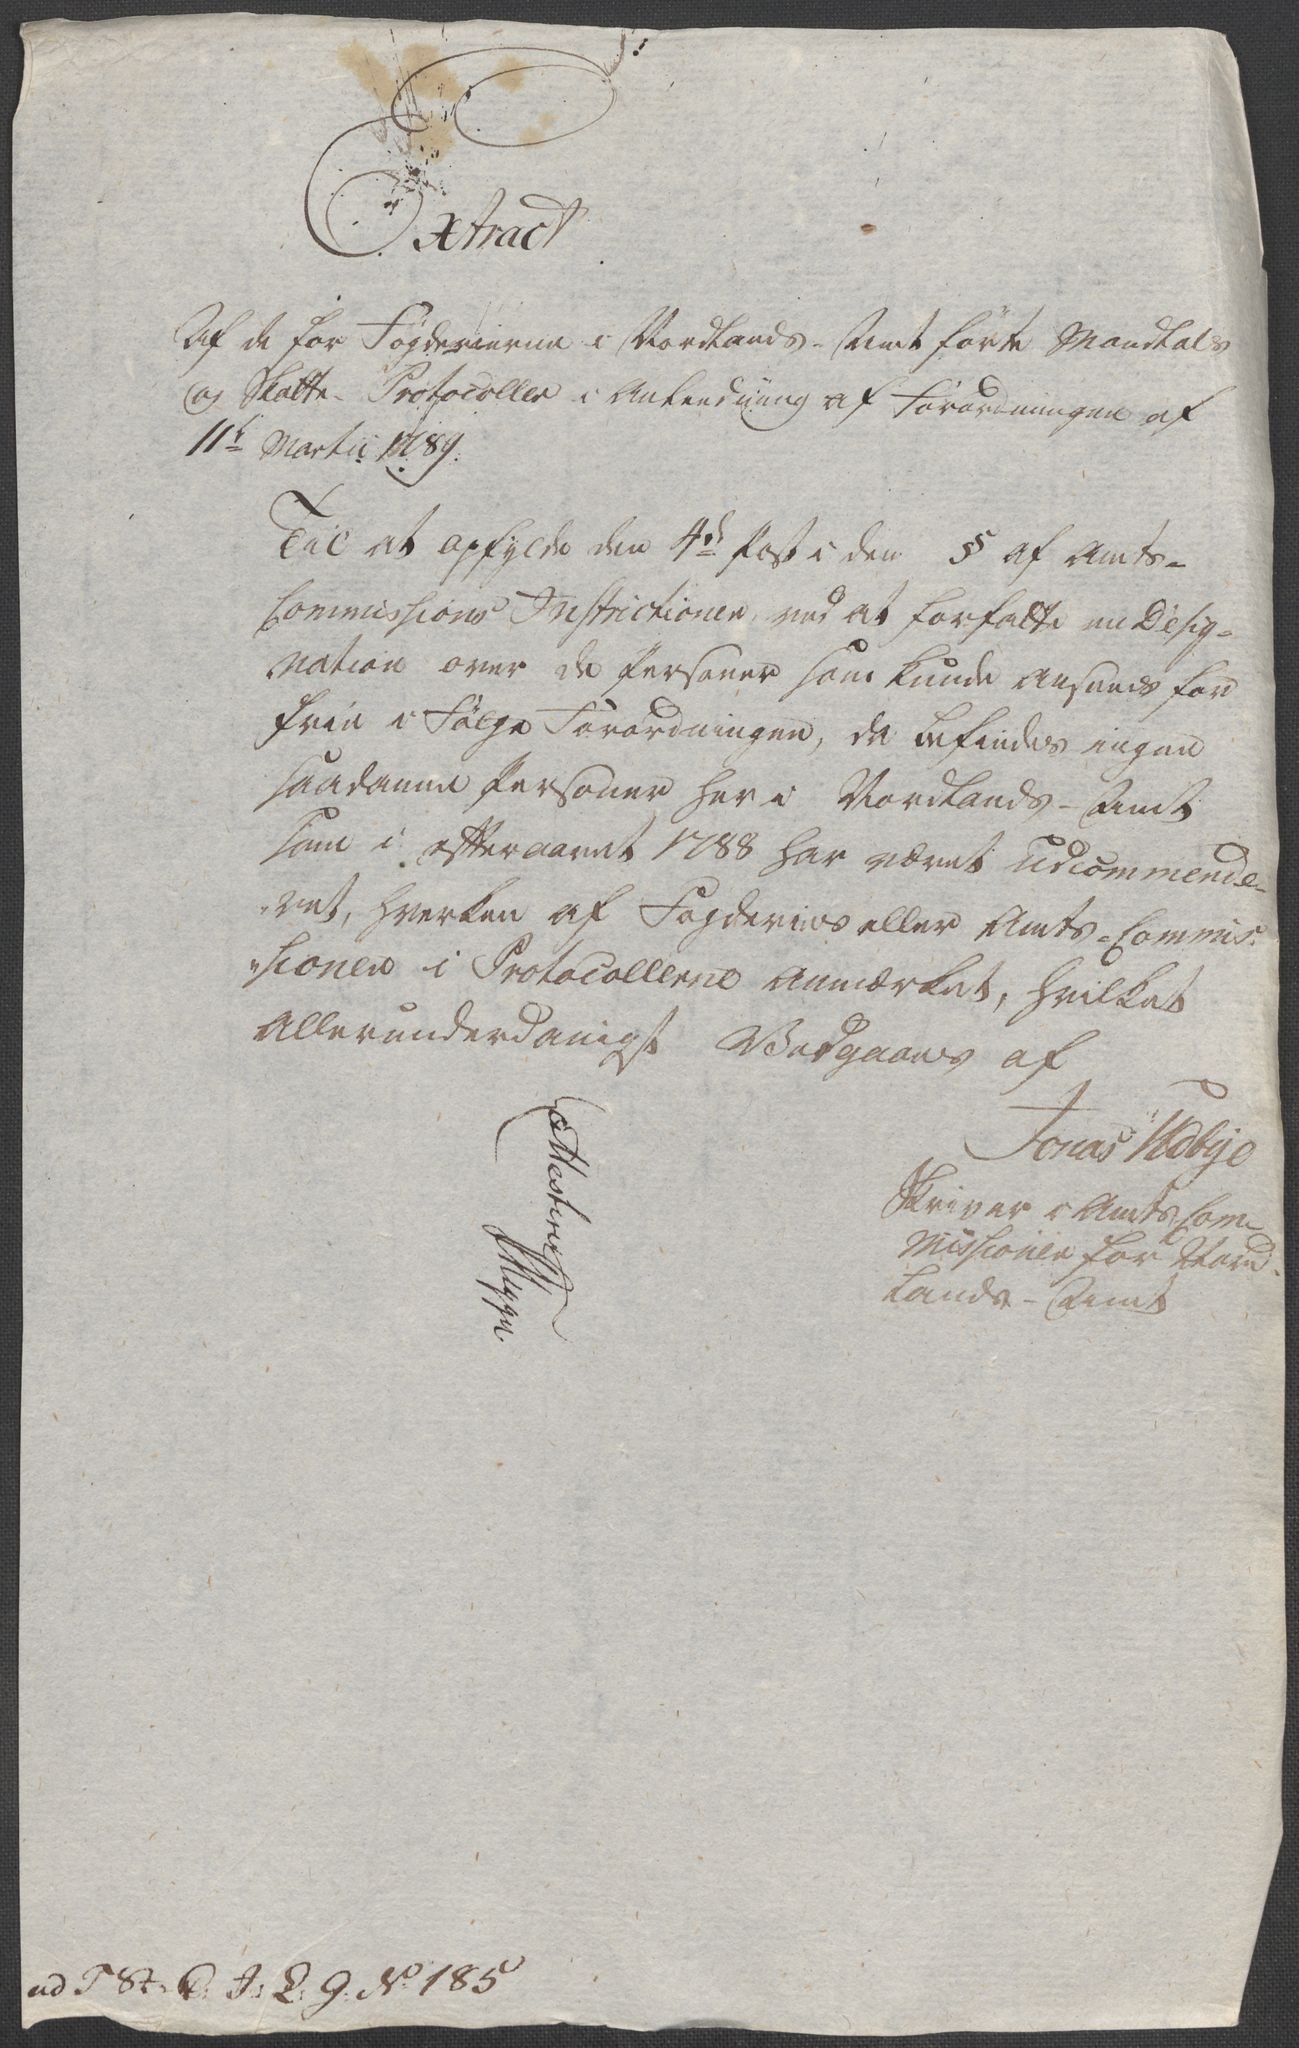 Extract
Af de for Fogderierne i Nordlands-Amt førte Mandtals
og Skatte-Protocoller i Anleedning af Forordningen af
11te Martii 1789.
Til at opfylde den 4de Post i den § af Amts-
Commissions Instructionen, ved at forfatte en Desig-
nation over de Personer som kunde ansees for
frie i Følge Forordningen, da befindes ingen
saadanne Personer her i Nordlands-Amt
som i efteraaret 1788 har været udcommende-
ret, hverken af Fogderies eller Amts-Commis-
sionen i Protocollerne anmærket, hvilket
Allerunderdanigst Vedgaaes af
Jonas Udbye
Skriver i Amts Com-
missionen for Nord-
lands-Amt
Attesterer
ad T St. C. J. L. 9. No 185